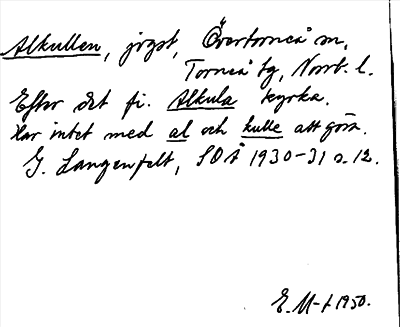 Alkullen, jrgst, Övertorneå sn,
Torneå tg, Norrb. l.
Efter det fi. Alkula kyrka.
Har intet med al och kulle att göra.
G. Langenfelt, SOÅ 1930-31 s. 12.
E. M-t 1950.